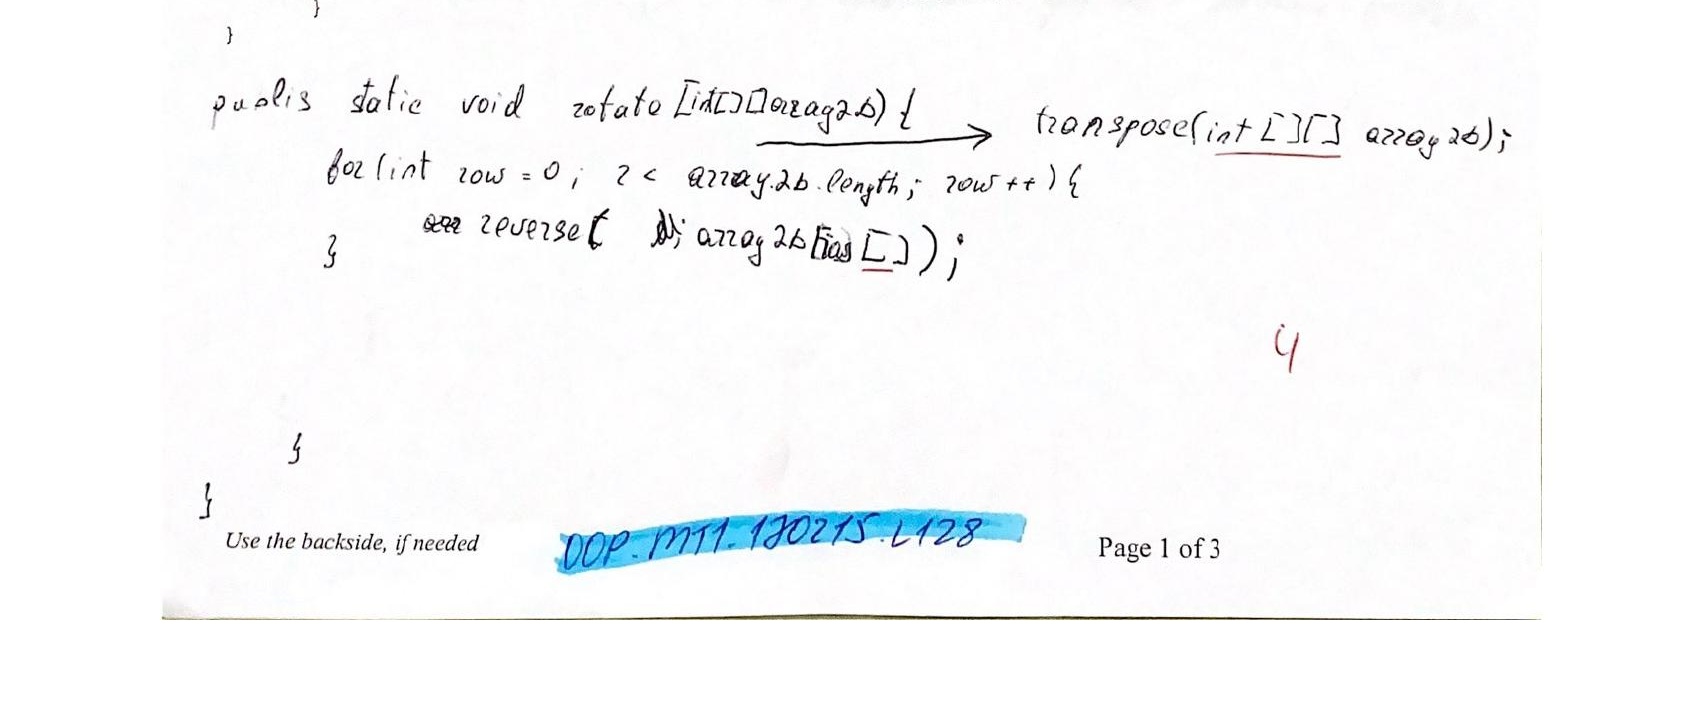 }
}
publis static void rotate [int[][]array2b) {
transpose(int [][] array2b);
for (int row = 0; r < array.2b.length; row++){
reverse( array2b [] );
}
4
}
}
Use the backside, if needed
OOP.MT1.170215.L128
Page 1 of 3